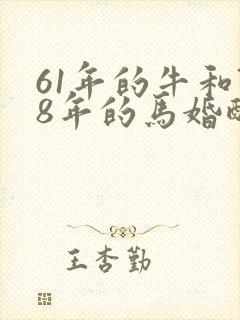 61年的牛和
8年的馬婚
王杏勤